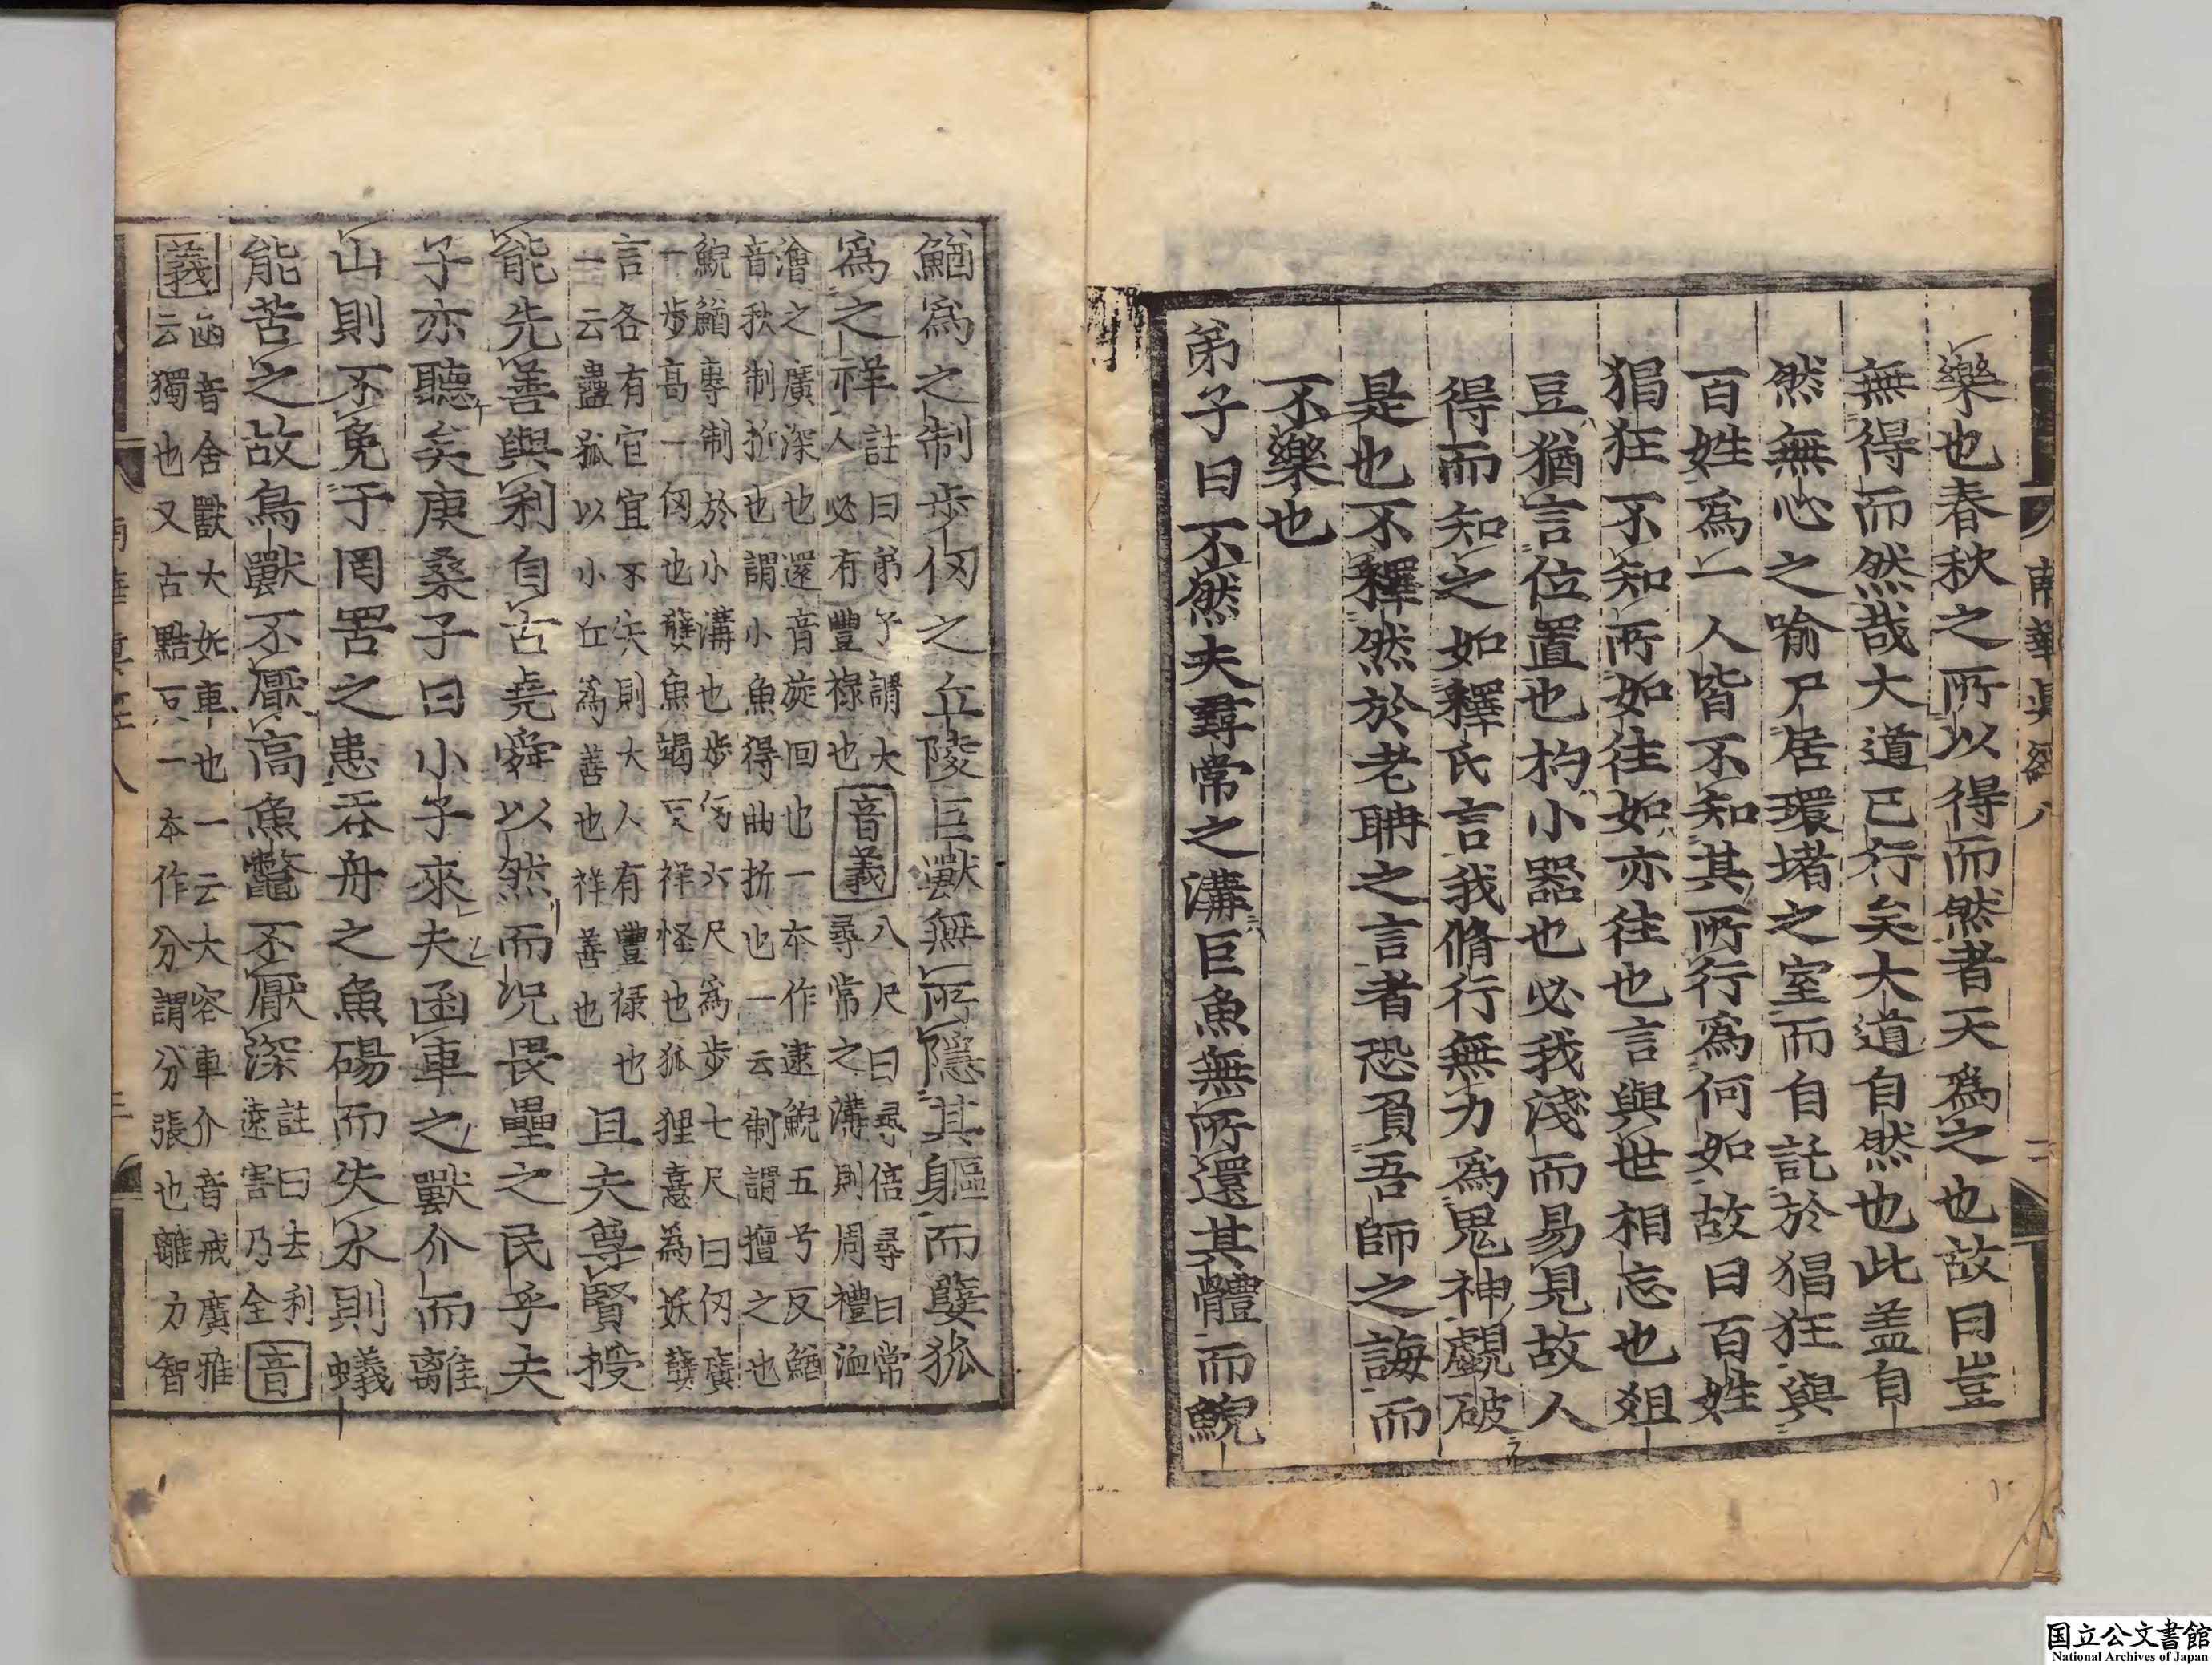 南華真經八 二
樂也春秋之所以得而然者天爲之也故曰豈
無得而然哉大道已行矣大道自然也此盖自
然無心之喻尸居環堵之室而自託於猖狂與
百姓爲一人皆不知其所行爲何如故曰百姓
猖狂不知所如徃如亦徃也言與世相忘也爼
豆猶言位置也杓小器也必我淺而易見故人
得而知之如釋氏言我脩行無力爲鬼神覷破
是也不釋然於老聃之言者恐負吾師之誨而
不樂也
弟子曰不然夫尋常之溝巨魚無所還其體而鯢
鰌爲之制步仞之丘陵巨獸無所隱其軀而㜸狐
爲之祥
註曰弟子謂大
人必有豐祿也
音義
八尺曰尋倍尋曰常
尋常之溝則周禮洫
澮之廣深也還音旋回也一本作逮鯢五兮反鰌
音秋制折也謂小魚得曲折也一云制謂擅之也
鯢鰌專制於小溝也步仭六尺爲步七尺曰仞廣
一步高一仞也㜸魚竭反祥怪也狐狸憙為妖㜸
言各有宜宜不失則大人有豐祿也
一云蠱狐以小丘爲善也祥善也
且夫尊賢授
能先善與利自古堯舜以然而况畏壘之民乎夫
子亦聽矣庚桑子曰小子來夫函車之獸介而離
山則不免于罔罟之患吞舟之魚碭而失水則蟻
能苦之故鳥獸不厭高魚鼈不厭深
註曰去利
遠害乃全
音
義
函音含獸大如車也一云大容車介音戒廣雅
云獨也又古黠反一本作分謂分張也離力智
南華真經八 三
国立公文書館
National Archives of Japan